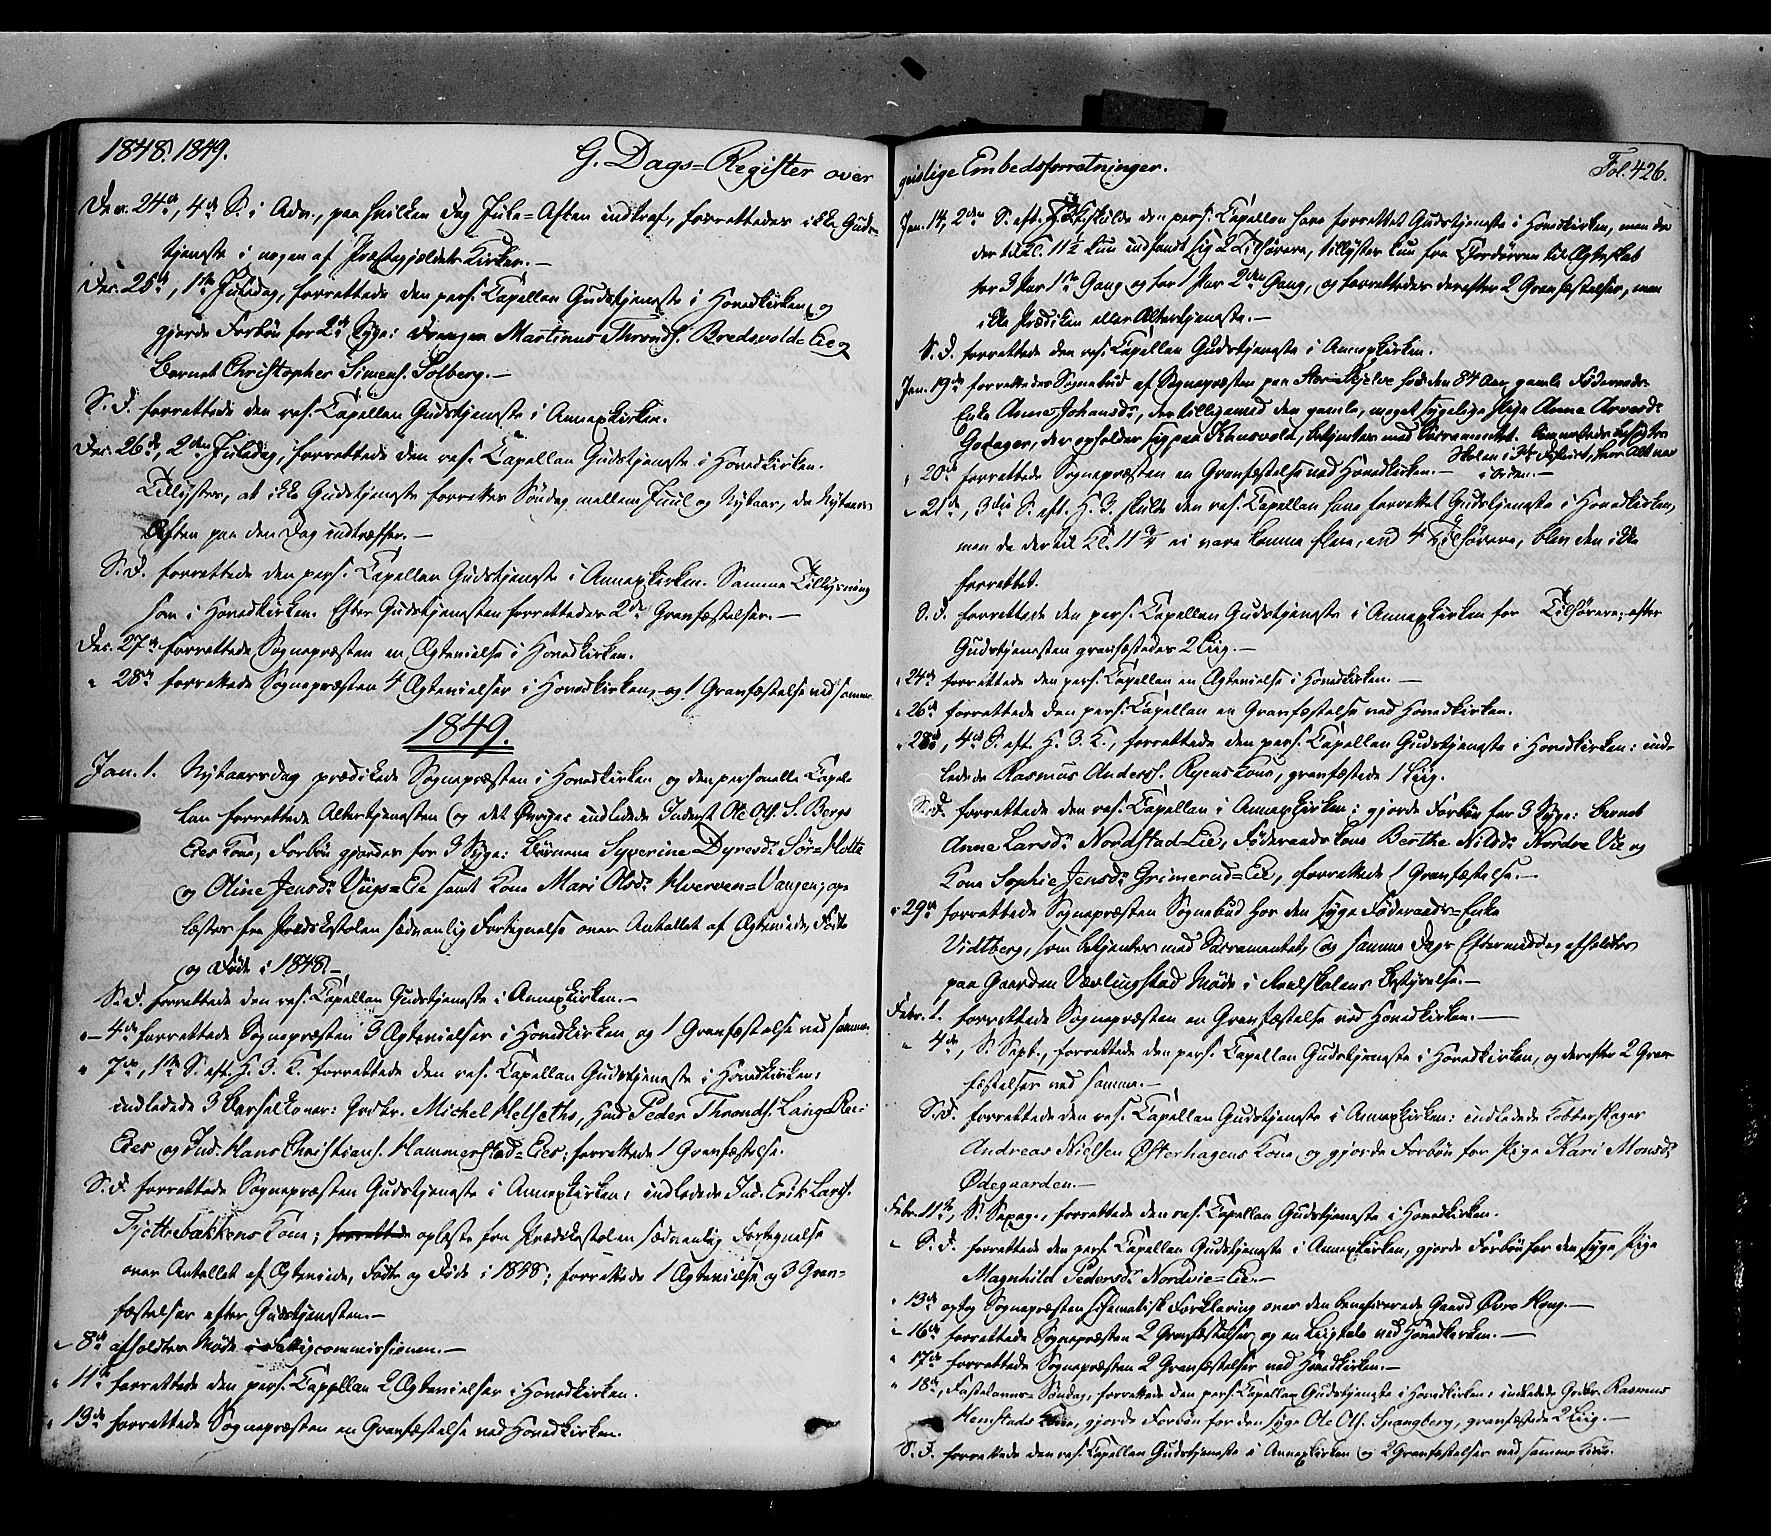 1848. 1849.
G. Dags=Register over
Dec. 24de, 4de S. i Adv., paa hvilken Dag Jule=Aften indtraf, forrettedes ikke Guds-
tjeneste i nogen af Præstegjeldets Kirker.—
Dec. 25de, 1ste Juledag, forrettede den pers. Capellan Gudstjeneste i Hovedkirken, og
gjorde Forbøn for 2de Syge: Drengen Martinus Thronds. Bredsvold=Eie og
Barnet Christopher Simens. Solberg.—
S. D. forrettede den res. Capellan Gudstjeneste i Annexkirken.
Dec. 26de, 2den Juledag, forrettede den res. Capellan Gudstjeneste i Hovedkirken.
Tillystes, at ikke Gudstjeneste forrettes Søndag mellem Juul og Nytaar, da Nytaars-
Aften paa den Dag indtræffer.—
S. D. forrettede den pers. Capellan Gudstjeneste i Annexkirken. Samme Tillysning
som i Hovedkirken. Efter Gudstjenesten forrettedes 2de Gravfæstelser.—
Dec. 27de forrettede Sognepræsten en Ægtevielse i Hovedkirken.
" 28de forrettede Sognepræsten 4 Ægtevielser i Hovedkirken, og 1 Gravfæstelse ved samme.
1849.
Jan. 1. Nytaarsdag prædikede Sognepræsten i Hovedkirken og den personelle Capel-
lan forrettede Altertjenesten og det Øvrige: indledede Inderst Ole Ols. S. Bergs
Eies Kone, Forbøn gjordes for 3 Syge: Børnene Syverine Dyresdr. Sør=Hotte
og Oline Jensdr. Viigs=Eie samt Kone Mari Olsdr. Hverven=Vangen; op-
læstes fra Prædikestolen sædvanlig Fortegnelse over Antallet af Ægteviede, Fødte
og Døde i 1848.—
S. D. forrettede den res. Capellan Gudstjeneste i Annexkirken.—
" 4de forrettede Sognepræsten 3 Ægtevielser i Hovedkirken og 1 Gravfæstelse ved samme.
" 7de, 1ste S. eft. H. 3. K. forrettede den res. Capellan Gudstjeneste i Hovedkirken;
indledede 3 Barselkoner: Gdbr. Michel Helseths, Hmd. Peder Thronds. Lang=Rei-
Eies og Ind. Hans Christians. Hammerstad=Eies; forrettede 1 Gravfæstelse.
S. D. forrettede Sognepræsten Gudstjeneste i Annexkirken; indledede Ind. Erik Lars.
Fjettebakkens Kone; forrettede oplæste fra Prædikestolen sædvanlig Fortegnelse
over Antallet af Ægteviede, Fødte og Døde i 1848; forrettede 1 Ægtevielse og 3 Grav-
fæstelser efter Gudstjenesten.—
" 8de afholdtes Møde i Fattigcommissionen.—
" 11te forrettede den pers. Cappellan 2 Ægtevielser i Hovedkirken.
" 13de forrettede Sognepræsten en Gravfæstelse ved Hovedkirken.
geistlige Embedsforretninger.
Fol. 426.
Jan. 14, 2den S. eft. H. 3 K. skulde den pers. Capellan have forrettet Gudstjeneste i Hovedkirken, men da
der til Kl. 11½ kun indfandt sig 2 Tilhørere, tillystes kun fra Chordørren til Ægteskab
for 3 Par 1ste Gang og for 1 Par 2den Gang, og forrettedes derefter 2 Gravfæstelser, men
ikke Prædiken eller Altertjeneste.—
S. D. forrettede den res. Capellan Gudstjeneste i Annexkirken.
Jan. 19de forrettedes Sognebud af Sognepræsten paa Hjelve hos den 84 Aar gamle Føderaads-
Enke Anne Johansdr., der tilligemed den gamle, meget sygelige Pige Anne Arvesdr.
Godager, der opholder sig paa Kansvold, betjentes med Sacramentet. Sammesteds besøgtes
Skolen i 3die District, hvor Alt var
i Orden.—
" 20de forrettede Sognepræsten en Gravfæstelse ved Hovedkirken.—
" 21de, 3die S. eft. H. 3. skulde den res. Capellan have forrettet Gudstjeneste i Hovedkirken,
men da der til Kl. 11¾ ei vare komne flere, end 4 Tilhørere, blev den ikke
forrettet.
S. D. forrettede den pers. Capellan Gudstjeneste i Annexkirken for Tilhørere; efter
Gudstjenesten gravfæstedes 2 Liig.—
" 24de forrettede den pers. Capellan en Ægtevielse i Hovedkirken.—
" 26de forrettede den pers. Capellan en Gravfæstelse ved Hovedkirken.
" 28de, 4de S. eft. H. 3. K., forrettede den pers. Capellan Gudstjeneste i Hovedkirken: ind-
ledede Rasmus Anders. Ryens Kone, gravfæstede 1 Liig.
S. D. forrettede den res. Capellan i Annexkirken: gjorde Forbøn for 3 Syge: Barnet
Anne Larsdr. Nordstad=Eie, Føderaadskone Berthe Nilsdr. Nordre Vie og
Kone Sophie Jensdr. Grimerud=Eie, forrettede 1 Gravfæstelse.—
" 29de forrettede Sognepræsten Sognebud hos den syge Føderaads=Enke
Vidtberg, som betjentes med Sacramentet, og samme Dags Eftermiddag afholdtes
paa Gaarden Værlingstad Møde i Realskolens Bestyrelse.—
Febr. 1. forrettede Sognepræsten en Gravfæstelse ved Hovedkirken.—
" 4de, S. Sept., forrettede den pers. Capellan Gudstjeneste i Hovedkirken, og derefter 2 Grav-
fæstelser ved samme.—
S. D. forrettede den res. Capellan Gudstjeneste i Annexkirken: indledede Kobberslager
Andreas Nielsen Østerhagens Kone og gjorde Forbøn for Pige Kari Monsdr.
Ødegaarden.—
Febr. 11te, S. Sexag., forrettede den res. Capellan Gudstjeneste i Hovedkirken.
" S. D. forrettede den pers. Capellan Gudstjeneste i Annexkirken, gjorde Forbøn for den syge Pige
Magnhild Pedersdr. Nordvie=Eie.—
" 13de optog Sognepræsten schematisk Forklaring over den beneficerede Gaard Øvre Houg.—
" 16de forrettede Sognepræsten 2 Gravfæstelser og en Liigtale ved Hovedkirken.—
" 17de forrettede Sognepræsten 2 Gravfæstelser ved Hovedkirken.—
" 18de, Fastelavns=Søndag, forrettede den pers. Capellan Gudstjeneste i Hovedkirken: indledede Gdbr. Rasmus
Hemstads Kone, gjorde Forbøn for den syge Ole Ols. Spangberg, gravfæstede 2 Liig.—
S. D. forrettede den res. Capellan Gudstjeneste i Annexkirken og 2 Gravfæstelser ved samme Kirke.